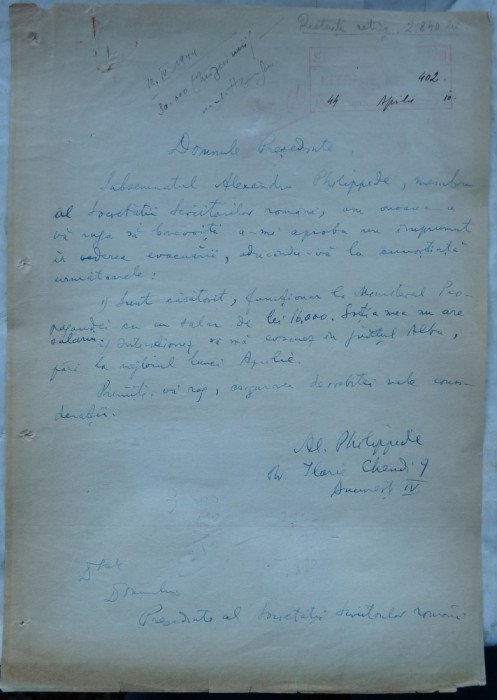 2.840 lei
12.IV.1944
30.000
402
44 Aprilie 10
Domnule Președinte
Subsemnatul Alexandru Philippide, membru
al Societății Scriitorilor români, am onoarea a
vă ruga să binevoiți a-mi aproba un împrumut
în vederea evacuării, aducându-vă la cunoștință
următoarele:
1) Sunt căsătorit, funcționar la Ministerul Pro-
pagandei cu un salar de lei 16.000. Soția mea nu are
salariu; intenționez să mă evacuez în județul Alba,
până la mijlocul lunei Aprilie.
Primiți, vă rog, asigurarea deosebitei mele consi-
derații.
Al. Philippide
Ilarie Chendi 9
București IV
Domnului
Președinte al Societății Scriitorilor români